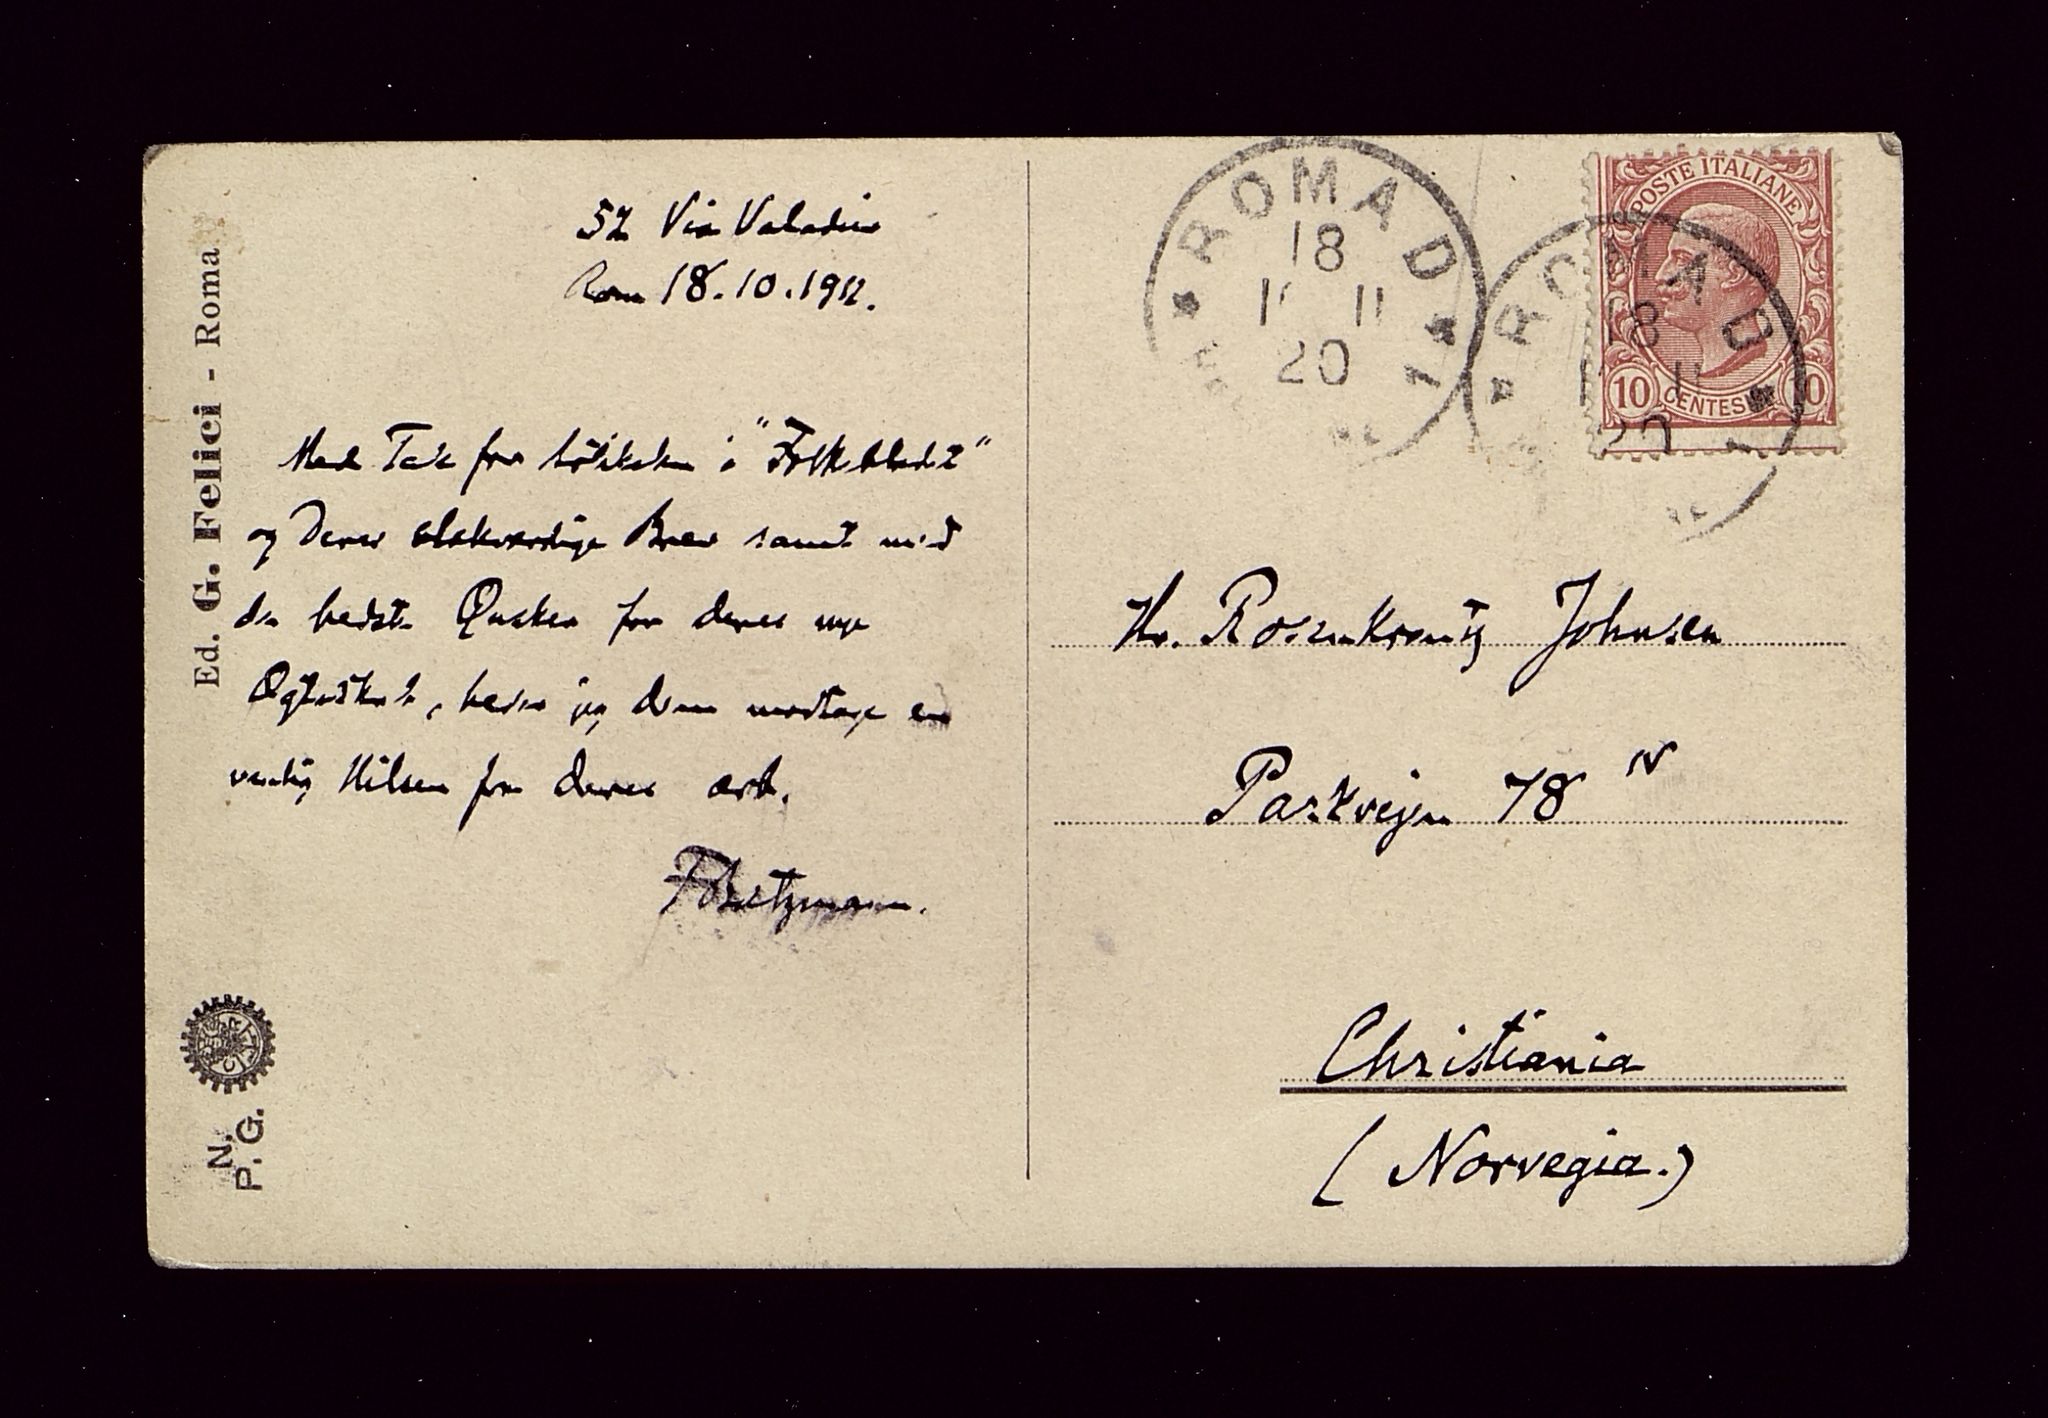 52 Via Valadier
Rom 18.10.1911.
Med Tak for i "Folkebladet"
og Deres elskværdige Brev samt med
de bedste Ønsker for deres nye
Ægteskab, beder jeg dem modtage en
venlig Hilsen fra deres ærb.
Ed. G. Felici - Roma
N.
P. G.
ROMA D
18
11
20
POSTE ITALIANE
10 CENTESIMI 10
ROMA D
18
11
20
Hr. Rosenkrantz Johnsen
Parkvejen 78 IV
Christiania
(Norvegia.)